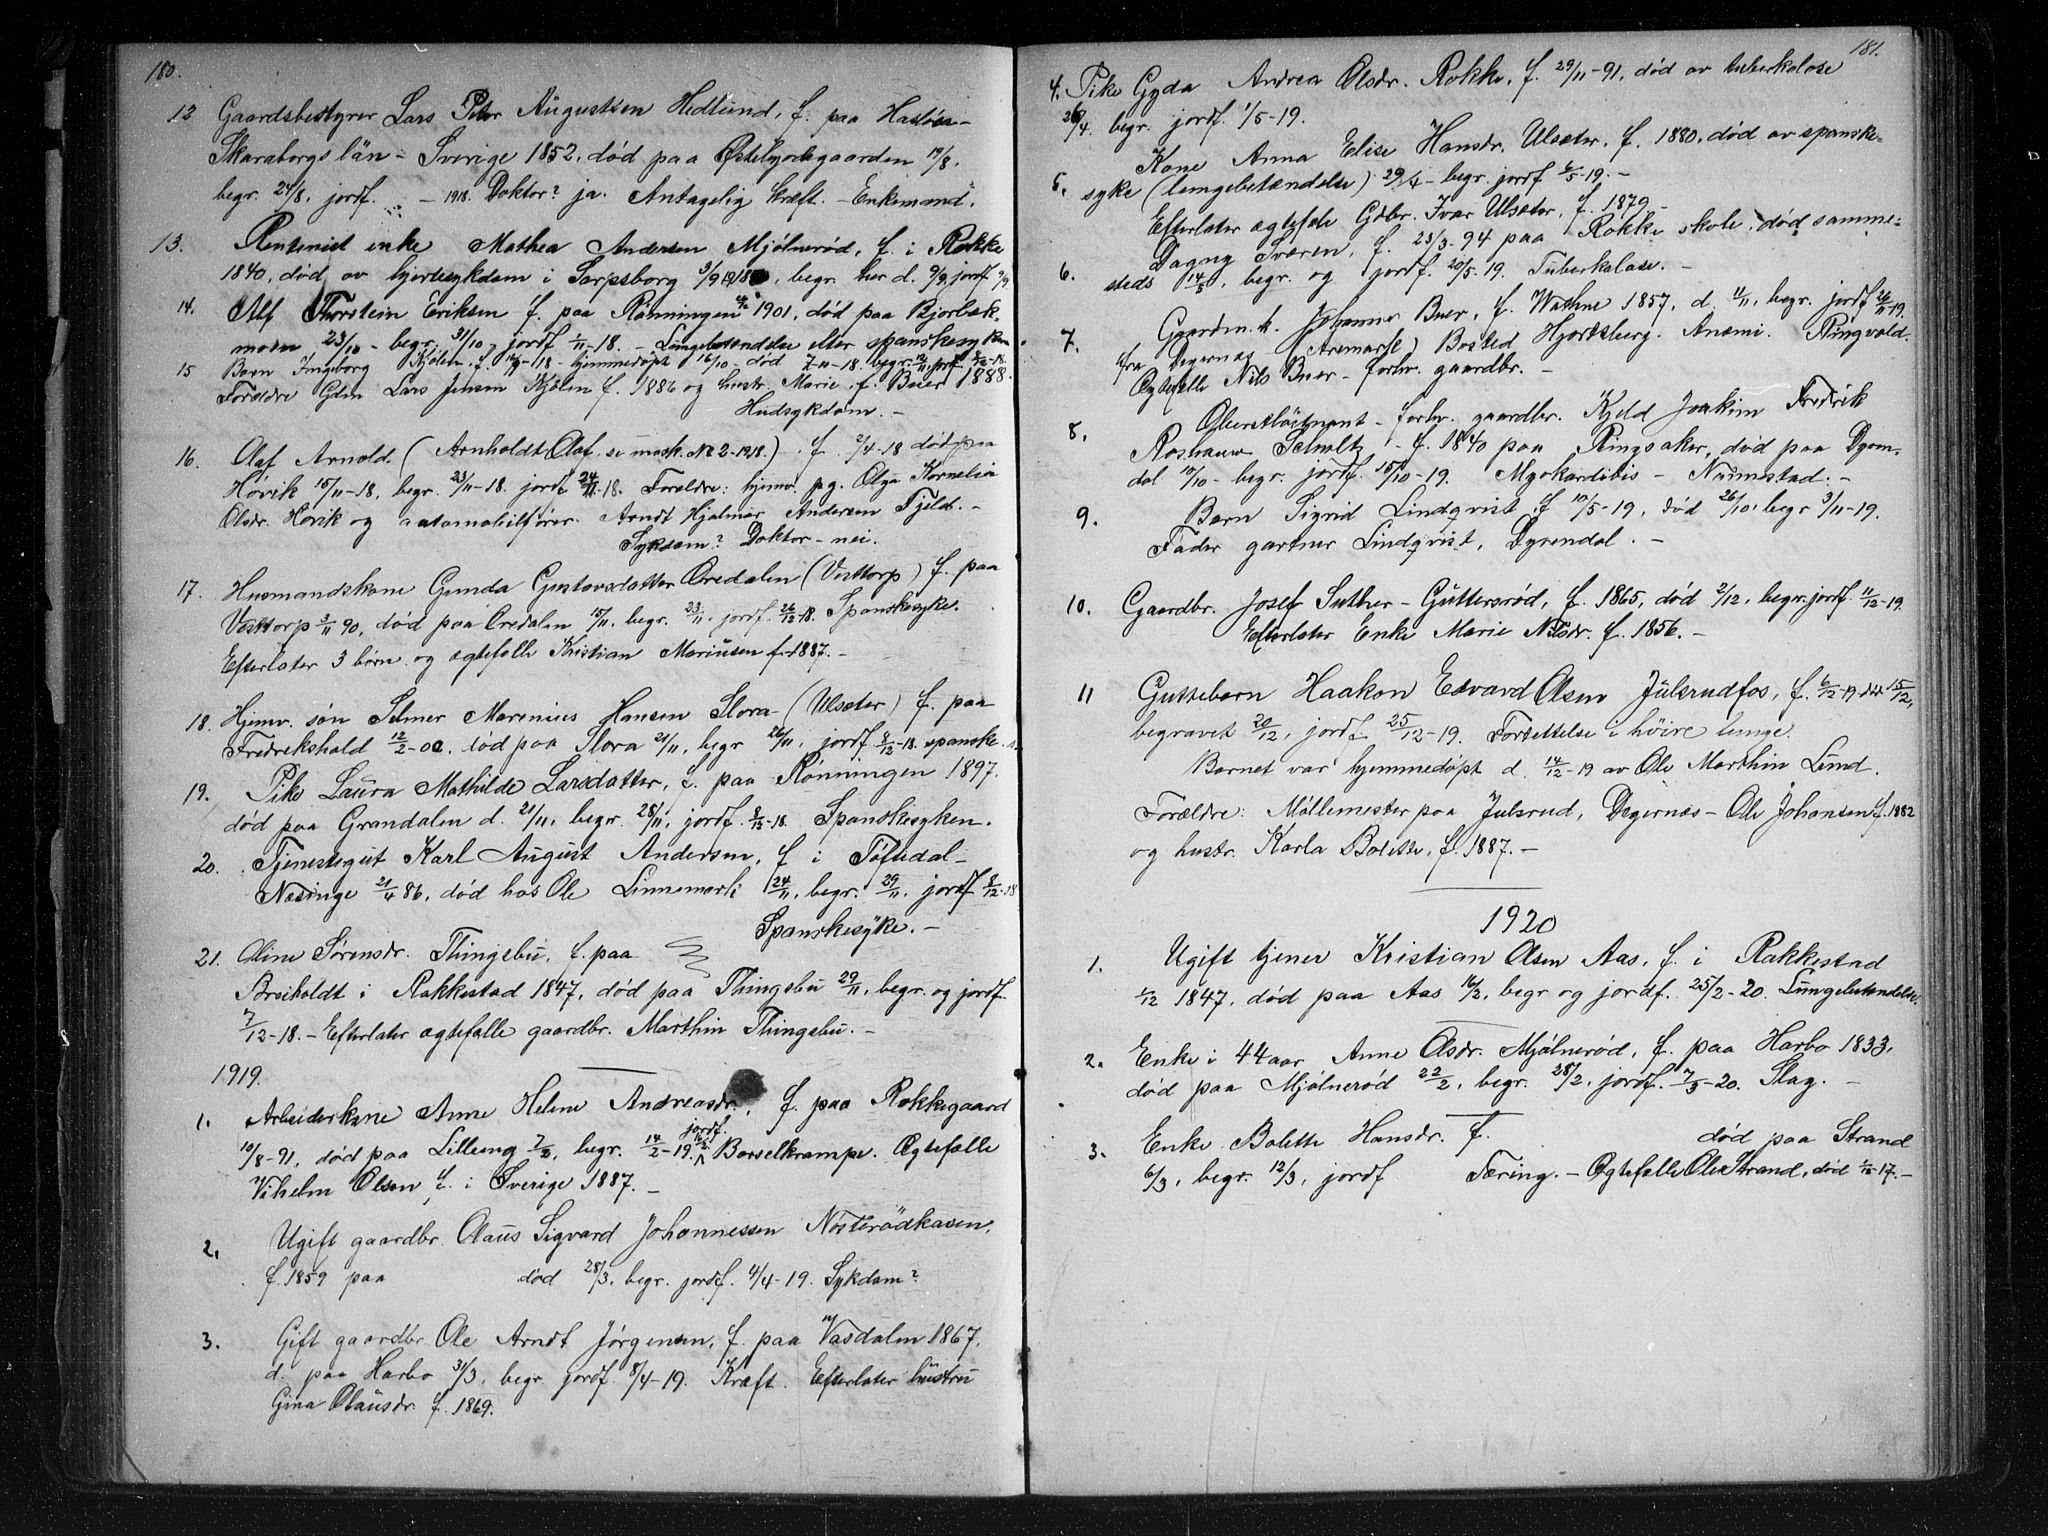 180.
12 Gaardsbestyrer Lars Peter Augustsen Hedlund, f. paa
Skaraborgs län - Sverige 1852, død paa Østebyødegaarden 19/8.
begr. 24/8, jordf. - 1918. Doktor? ja. Antagelig kræft. - Enkemand.
13. Rentenist enke Mathea Andersen Mjølnerød, f. i Rokke
1840, død av hjertesykdom i Sarpsborg 3/9 1918, begr. her d. 9/9, jordf 9/9.
14. Alf Thorstein Eriksen f. paa Rønningen 1901, død paa Bjorbæk-
moen 23/10 - begr. 31/10, jordf 1/11-18. - Lungebetændelse efter spanskesyken.
15 Barn Ingeborg Kjølen, f. 18 - hjemmedöpt 16/10 død 7-11-18. begr. 12/11 jordf 8/12-18.
Forældre Gdm Lars Johan Kjølen f. 1886 og hustr. Marie, f. Beier 1888.
Hudsykdom. -
16. Olaf Arnold. (Arnholdt Olaf. se mask. No 2-1918). f. 2/4-18 død paa
Høvik 15/11-18, begr. 23/11-18. jordf 24/11-18. Forældre: hjemv. pg. Olga Kornelia
Olsdr. Høvik og automobilfører. Arndt Hjalmar Andersen Fjeld. -
Sykdom? Doktor - nei.
17. Husmandskone Gunda Gustavsdatter Oredalen (Vesttorp) f. paa
Vesttorp 3/11 90, død paa Oredalen 15/11, begr. 23/11, jordf. 26/12-18. Spanskesyke.
Efterlater 3 børn og ægtefælle Kristian Mariusen f. 1887. -
18. Hjemv. søn Selmer Marenius Hansen Slora - (Ulsæter) f. paa
Fredrikshald 12/2-02. død paa Slora 21/11, begr 26/11, jordf 8/12-18. spanske. s.
19. Pike Laura Mathilde Larsdatter, f. paa Rønningen 1897.
død paa Grandalen d. 21/11, begr. 28/11, jordf. 8/12-18. Spanskesyken.
20. Tjenestegut Karl August Andersen, f i Töftedal -
Næsinge 21/4 86, død hos Ole Linnemark 24/11, begr. 29/11, jordf 8/12-18
Spanskesyke. -
21. Oline Sørensdr. Thingsbu, f. paa
Breiholdt i Rakkestad 1847, død paa Thingsbu 29/11, begr. og jordf.
7/12-18. - Efterlater ægtefælle gaardbr. Marthin Thingsbu. -
1919.
1. Arbeiderkone Anne Helene Andreasdr., f. paa Rokkegaard
jordf.
10/8-91, død paa Lilleeng 7/2, begr. 14/2-19. Barselkrampe. Ægtefælle
Vihelm Olsen f. i Sverige 1887. -
2. Ugift gaardbr. Olaus Sigvard Johannessen Nösterödkasen,
f. 1859 paa død 28/3, begr. jordf. 4/4-19. Sykdom?
3. Gift gaardbr. Ole Arndt Jørgensen, f. paa Vasdalen 1867.
d. paa Harbo 31/3, begr. jordf. 8/4-19. Kræft. Efterlater hustru
Gina Olausdr. f. 1869.
181.
4. Pike Gyda Andrea Olsdr. Rokke, f. 29/11-91, død av tuberkolose
26/4. begr. jordf. 1/5-19.
5. Kone Anna Elise Hansdr. Ulsæter, f. 1880, død av spanske-
syke (lungebetændelse) 29/4 - begr. jordf 6/5-19. -
Efterlater ægtefæle Gdbr. Ivar Ulsæter, f. 1879 -
6. Dagny Sværen, f. 23/3-94 paa Rokke skole, død samme-
steds 14/5, begr. og jordf. 20/5-19. Tuberkolose. -
7. Gaardm. k. Johanne Buer, f. Wathne 1857, d. 11/11, begr. jordf 26/11-19.
(fra Degernæs Aremark) Bosted Hjortsberg. Anæmi. Ringvold.
Ægtefelle Nils Buer - forhv. gaardbr. -
8. Oberstlöitnant - forhv. gaardbr. Kjeld Joakim Fredrik
Roshauw Scholtz - f. 1840 paa Ringsaker, død paa Dyren-
dal 10/10 - begr. jordf. 15/10-19. Myokarditis - Nannestad. -
9. Barn Sigrid Lindqvist f 10/5-19, død 26/10, begr 3/11-19.
Fader gartner Lindqvist, Dyrendal. -
10. Gaardbr. Josef Suther - Guttersrød, f. 1865, død 2/12, begr. jordf. 11/12-19.
Efterlater Enke Marie Nilsdr. f. 1856. -
11 Guttebarn Haakon Edvard Olsen Julsrudfos, f. 6/12-19, död 15/12,
begravet 20/12, jordf 25/12-19. Fortettelse i höire lunge.
Barnet var hjemmedöpt d. 14/12-19 av Ole Marthin Lund.
Forældre: Møllemester paa Julsrud, Degernæs - Ole Johansen f. 1882
og hustr. Karla Bolette, f. 1887. -
1920
1. Ugift tjener Kristian Olsen Aas, f. i Rakkestad
1/12 1847, død paa Aas 16/2, begr og jordf. 25/2-20. Lungebetændelse
2. Enke i 44 aar Anne Olsdr. Mjølnerød, f. paa Harbo 1833,
død paa Mjølnerød 22/2, begr. 28/2, jordf. 7/3-20. Slag. -
3. Enke Bolette Hansdr. f. død paa Strand
6/3, begr. 12/3, jordf Tæring. - Ægtefælle Ole Strand, død 17. -